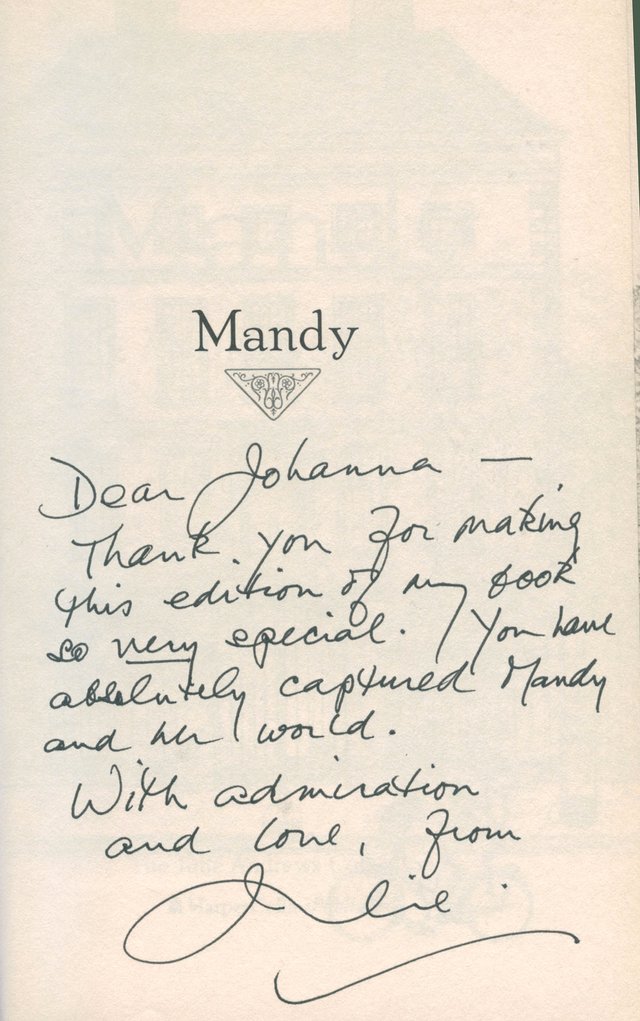 Mandy
Dear Johanna —
Thank you for making
this edition of my book
so very special. You have
absolutely captured Mandy
and her world.
With admiration
and love, from
Julie.